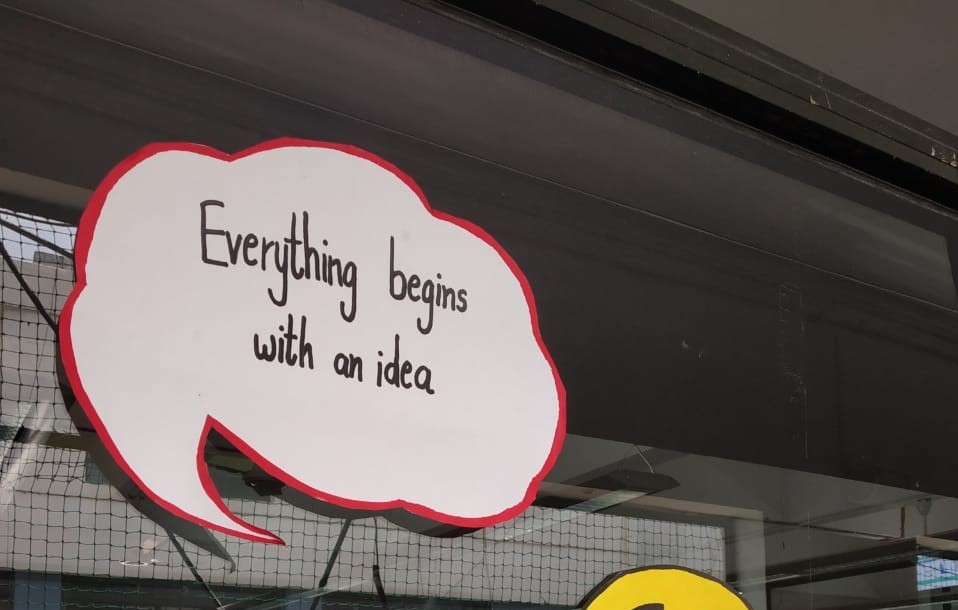 Everything begins
with an idea